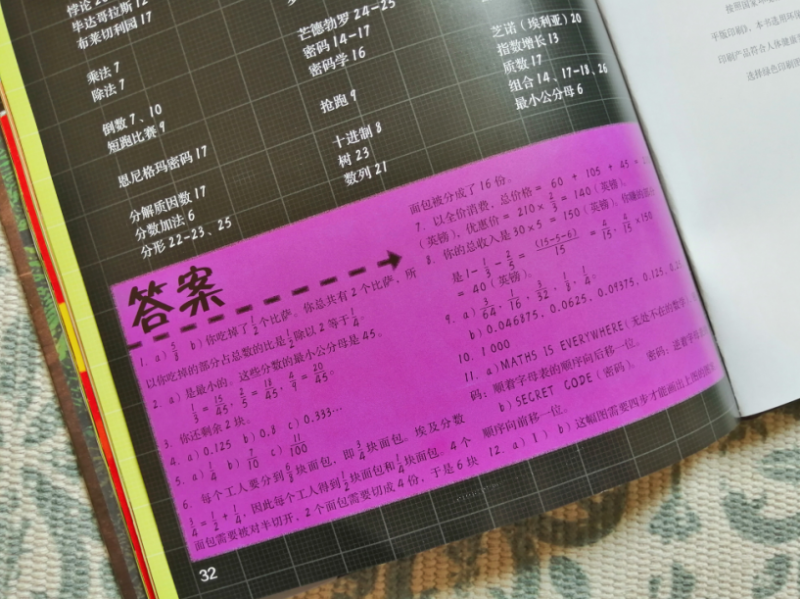 悖论 2
毕达哥拉斯 12
布莱切利园 17
乘法 7
除法 7
倒数 7、10
短跑比赛 9
恩尼格玛密码 17
分解质因数 17
分数加法 6
分形 22-23、25
芒德勃罗 24-25
密码 14-17
密码学 16
抢跑 9
十进制 8
树 23
数列 21
芝诺（埃利亚）20
指数增长 13
质数 17
组合 14、17-18、26
最小公分母 6
按照国家
平版印刷》，本书选用环
印刷产品符合人体健康
选择绿色印刷图
答案
1. a) 5/8 b) 你吃掉了 1/2 个比萨。你总共有 2 个比萨，所
以你吃掉的部分占总数的比是 1/2 除以 2 等于 1/4。
2. a) 是最小的。这些分数的最小公分母是 45。
= 15/45, 2/5 = 18/45, 4/9 = 20/45。
3. 你还剩余 2 块。
4. a) 0.125 b) 0.8 c) 0.333…
5. a) 1/4 b) 7/10 c) 11/100
6. 每个工人要分到 6/8 块面包，即 3/4 块面包。埃及分数
3/4 = 1/2 + 1/4，因此每个工人得到 1/2 块面包和 1/4 块面包。4 个
面包需要被对半切开。2 个面包需要切成 4 份，于是 6 块
面包被分成了 16 份。
7. 以全价消费，总价格 = 60 + 105 + 45 +
(英镑)。优惠价 = 210 × 2/3 = 140 (英镑)。
8. 你的总收入是 30 × 5 = 150 (英镑)。你赚的部分
是 1 - 1/3 - 2/5 = (15-5-6)/15 = 4/15，4/15 × 150
= 40 (英镑)。
9. a) 3/64, 1/16, 3/32, 1/8, 1/4。
b) 0.046875, 0.0625, 0.09375, 0.125, 0.2
10. 1 000
11. a) MATHS IS EVERYWHERE (无处不在的数学)
码：顺着字母表的顺序向后移一位。
b) SECRET CODE (密码)。 密码：逆着字母
顺序向前移一位。
12. a) 1 b) 这幅图需要四步才能画出上图的
32